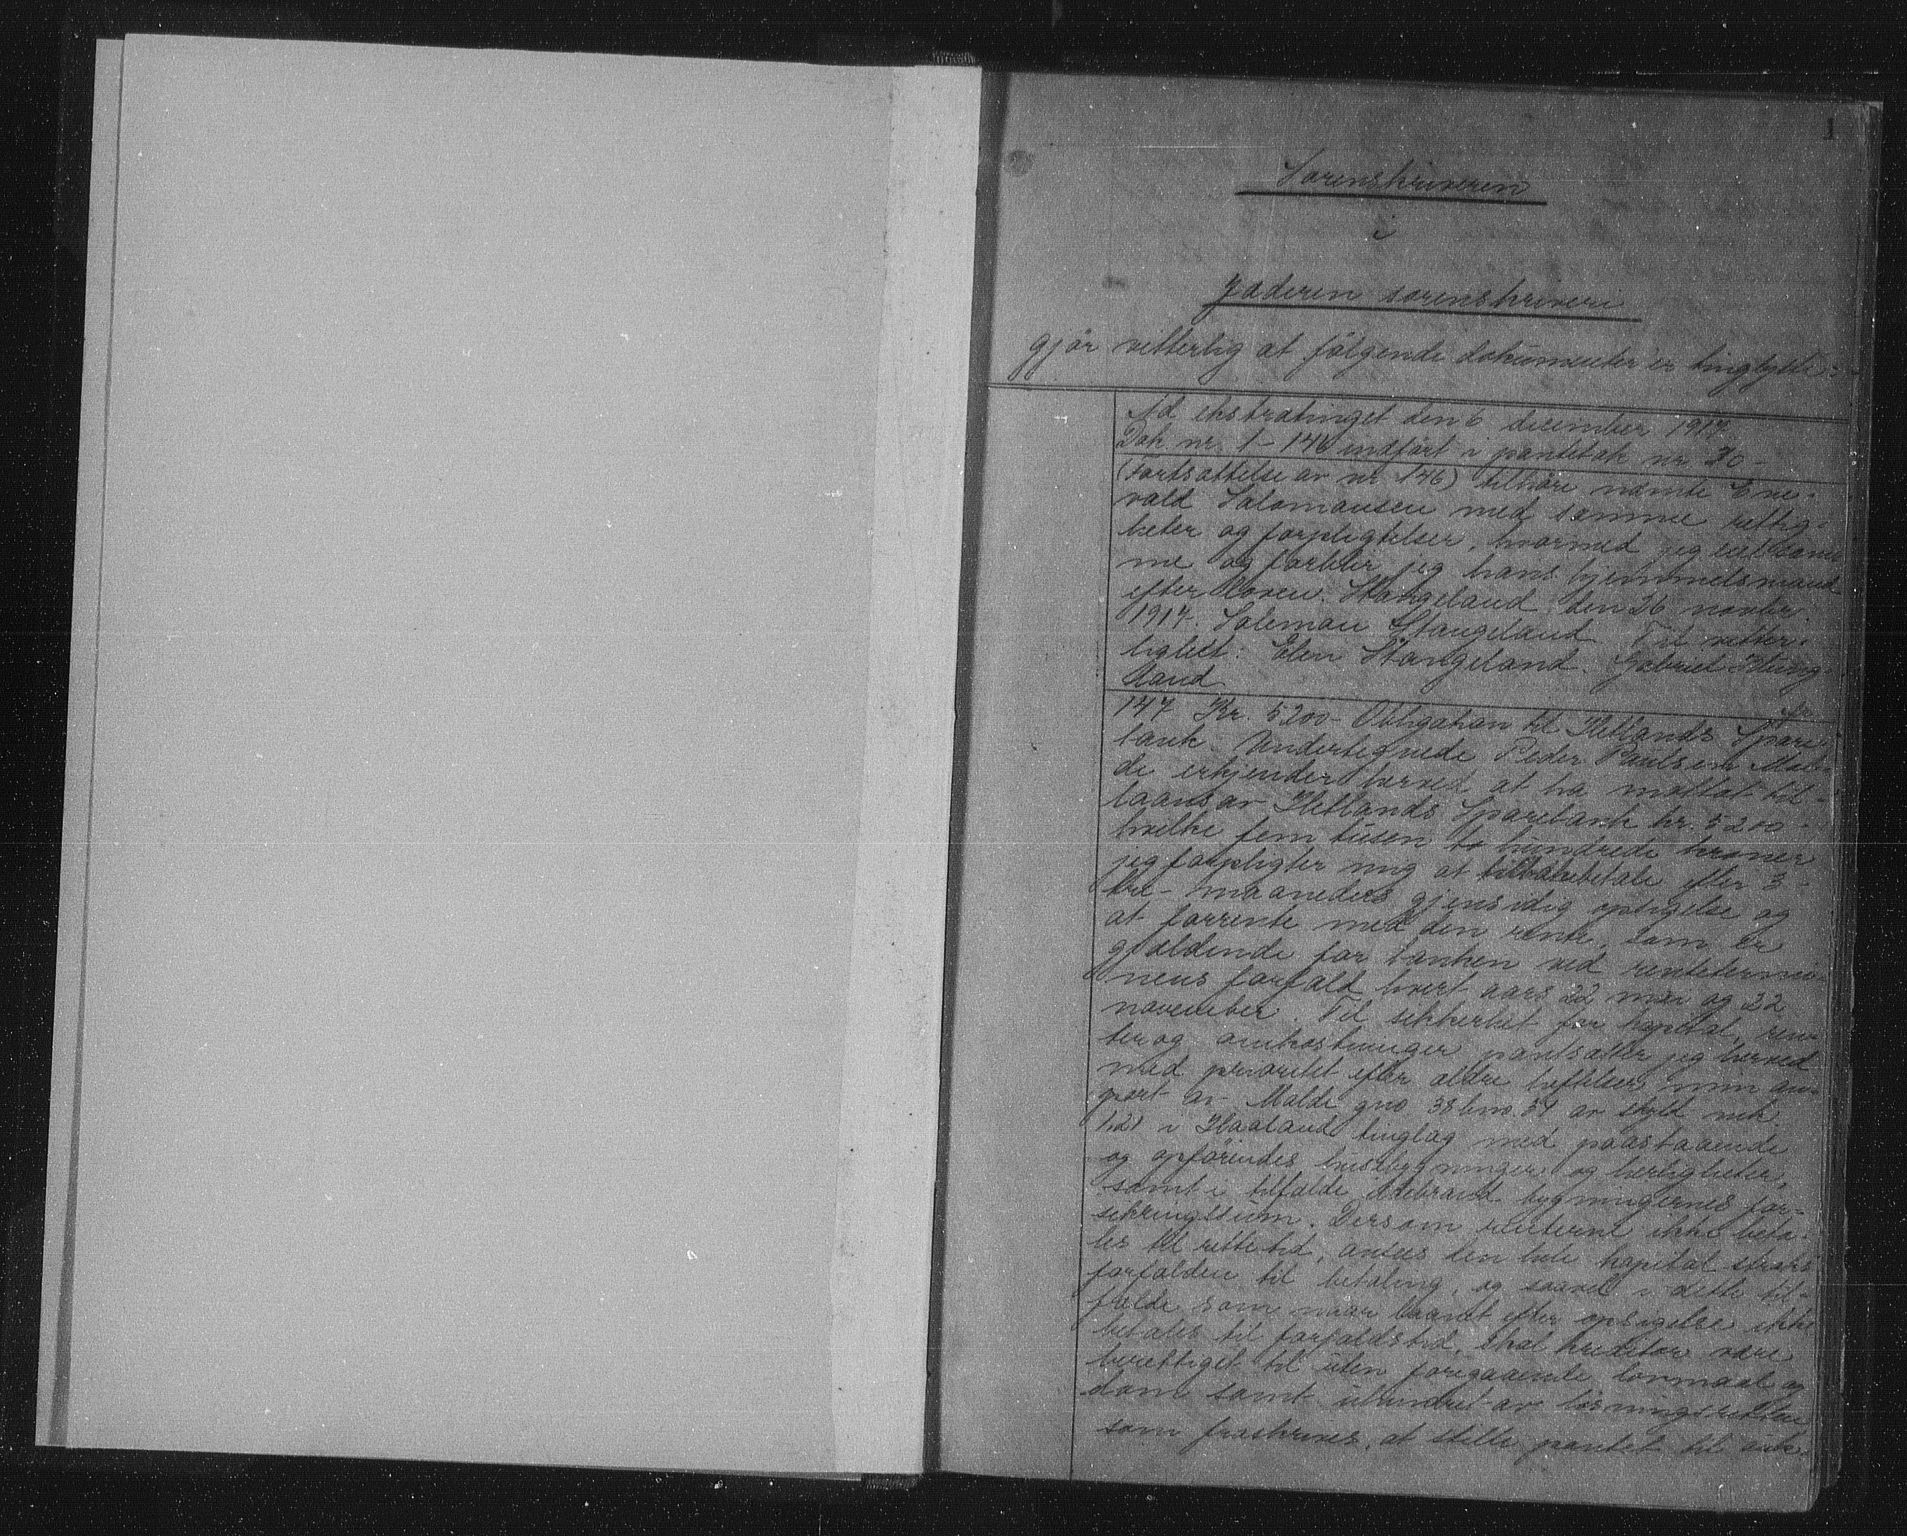 1
Sorenskriveren
i
Jæderen sorenskriveri
gjör vitterlig at følgende dokumenter er tinglyste:
Ad ekstratinget den 6 december 1917
Dok nr. 1-146 indført i pantebok nr 70-
(Fortsættelse av nr 146) tilhøre nævnte Ene-
vald Salomonsen med samme rettig-
heter og forpligtelser, hvormed jeg eiet sam-
me og forblir jeg hans hjemmelsmand
efter loven. Stangeland den 26 novbr.
1917. Saleman Stangeland Til vitter-
lighet: Elen Stangeland. Gabriel Stange-
land
147 Kr. 5200- Obligation til Hetlands Spare-
bank. Undertegnede Peder Paulsen Mal-
de erkjender herved at ha mottat til
laans av Hetlands Sparebank kr. 5200-
hvilke fem tusen to hundrede kroner
jeg forpligter mig at tilbakebetale efter 3-
tre- maaneders gjensidig opsigelse og
at forrente med den rente, som er
gjældende for banken ved rentetermi-
nens forfald hvert aars 22 mai og 22
november. Til sikkerhet for kapital, ren-
ter og omkostninger pantsætter jeg herved
med prioritet efter ældre heftelser min an-
part av Malde gno 38 bno. 54 av skyld mk.
1,21 i Haaland tinglag med paastaaende
og opførendes husebygninger og herligheter,
samt i tilfælde ildebrand bygningernes for-
sikringssum. Dersom renterne ikke beta-
les til rette tid, ansees den hele kapital straks
forfalden til betaling, og saavel i dette til-
fælde som naar laanet efter opsigelse ikke
betales til forfaldstid, skal kreditor være
berettiget til uten foregaaende lovmaal og
dom samt uhindret av løsningsretten
som fraskrives, at stille pantet til auk-